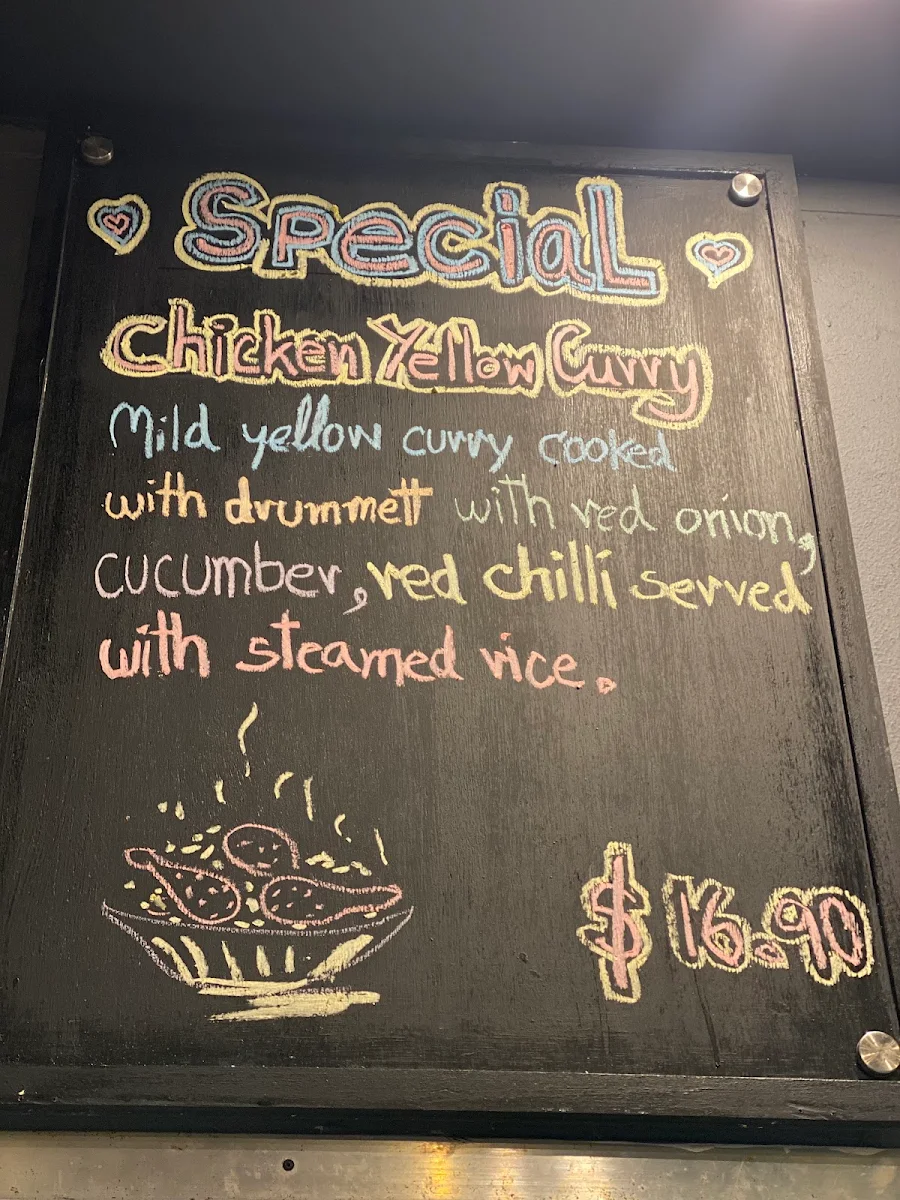 Special
Chicken Yellow Curry
Mild yellow curry cooked
with drummett with red onion,
cucumber, red chilli served
with steamed rice.
$16.90